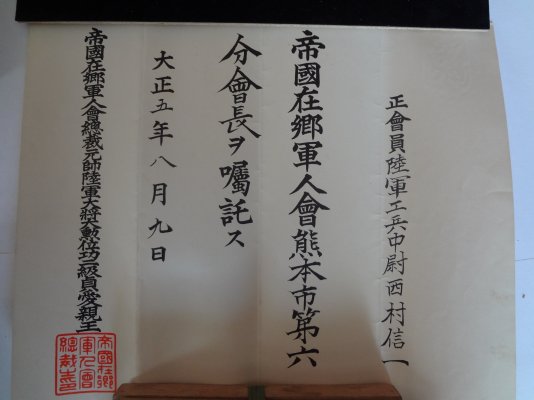 正會員陸軍工兵中尉西村信一
帝國在鄉軍人會熊本市第六
分會長ヲ囑託ス
大正五年八月九日
帝國在鄉軍人會總裁元帥陸軍大將大勳位功二級貞愛親王
帝國在鄉
軍人會
總裁之印